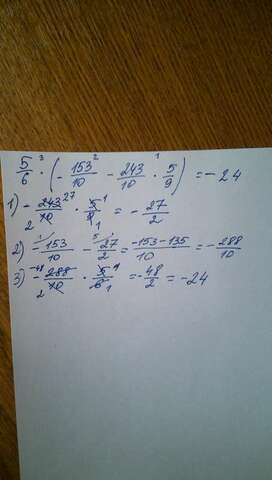 5/6 ·³ (- 153/10 -² 243/10 ·¹ 5/9) = -24
1) - 243²⁷/₂10 · 5¹/9₁ = - 27/2
2) - 153¹⁄/10 - 27⁵⁄/2 = -153-135/10 = - 288/10
3) - 288⁻⁴⁸/₂10 · 5¹/6₁ = -48/2 = -24